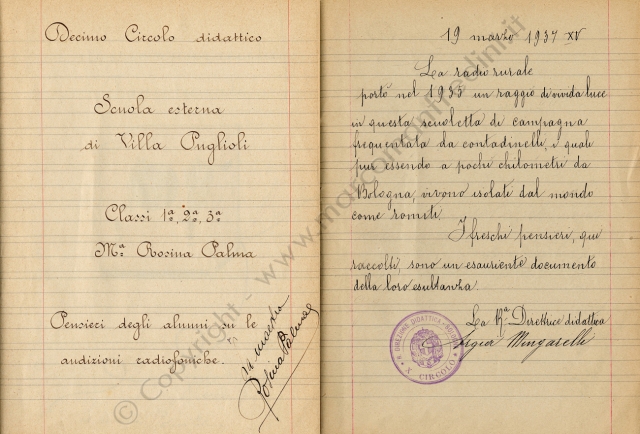 Decimo Circolo didattico
Scuola esterna
di Villa Puglioli
Classi 1ª, 2ª, 3ª
Mª Rosina Palma
Pensieri degli alunni su le
audizioni radiofoniche.
la maestra
Rosina Palma
19 marzo 1937 XV
La radio rurale
portò nel 1935 un raggio di vivida luce
in questa scuoletta di campagna
frequentata da contadinelli, i quali
pur essendo a pochi chilometri da
Bologna, vivono isolati dal mondo
come romiti.
I freschi pensieri, qui
raccolti, sono un esauriente documento
della loro esultanza.
La Rª Direttrice didattica
Mingarelli
R. DIREZIONE DIDATTICA
X CIRCOLO
© Copyright - www.marcomanfredini.it